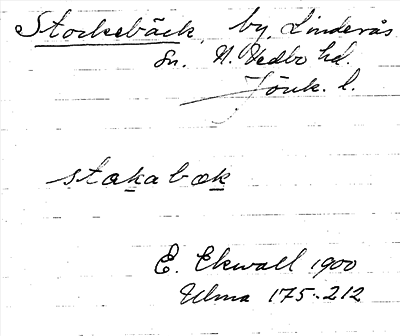 Stockebäck, by, Linderås
sn. N. Vedbo hd.
Jönk. l.
stakabæk
E. Ekwall 1900
Ulma 175-212